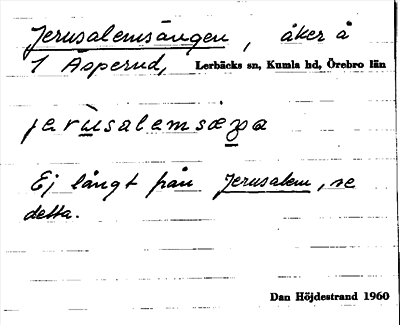 Jerusalemsängen, åker å
1 Åsperud, Lerbäcks sn, Kumla hd, Örebro län
jerùsalemsæŋa
Ej långt från Jerusalem, se
detta.
Dan Höjdestrand 1960